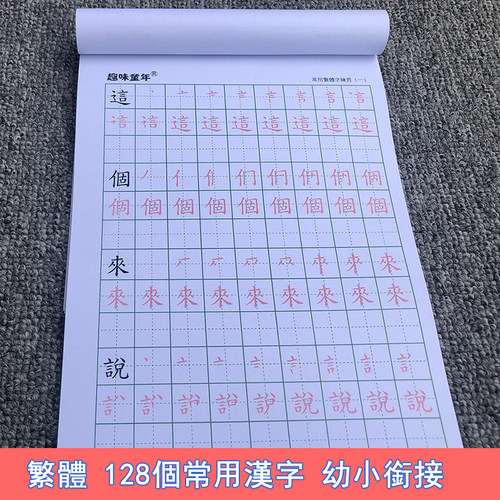 趣味童年® 常用繁體字練習(一)
這
這 這 這 這 這 這
個 們 們 個
個 個 個 個 個 個 個 個 個
來 來 來
來 來 來 來 來 來 來 來 來
說
說 說 說 說
繁體 128個常用漢字 幼小銜接